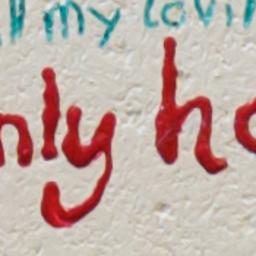 ll my lovin
nly ho